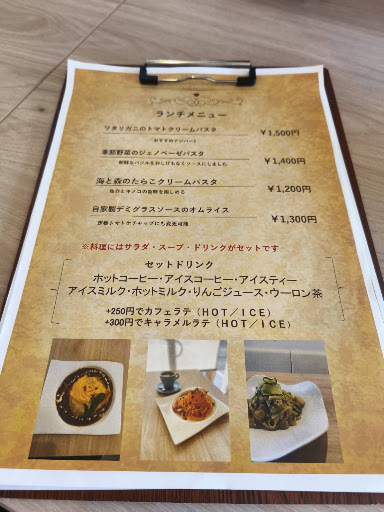 ランチメニュー
ワタリガニのトマトクリームパスタ ￥1,500円
おすすめナンバー1
季節野菜のジェノベーゼパスタ ￥1,400円
新鮮なバジルをおしげもなくソースにしました
海と森のたらこクリームパスタ ￥1,200円
魚介とキノコの旨味を楽しめる
自家製デミグラスソースのオムライス ￥1,300円
定番トマトケチャップにも変更可能
※料理にはサラダ・スープ・ドリンクがセットです
セットドリンク
ホットコーヒー・アイスコーヒー・アイスティー
アイスミルク・ホットミルク・りんごジュース・ウーロン茶
+250円でカフェラテ（HOT／ICE）
+300円でキャラメルラテ（HOT／ICE）